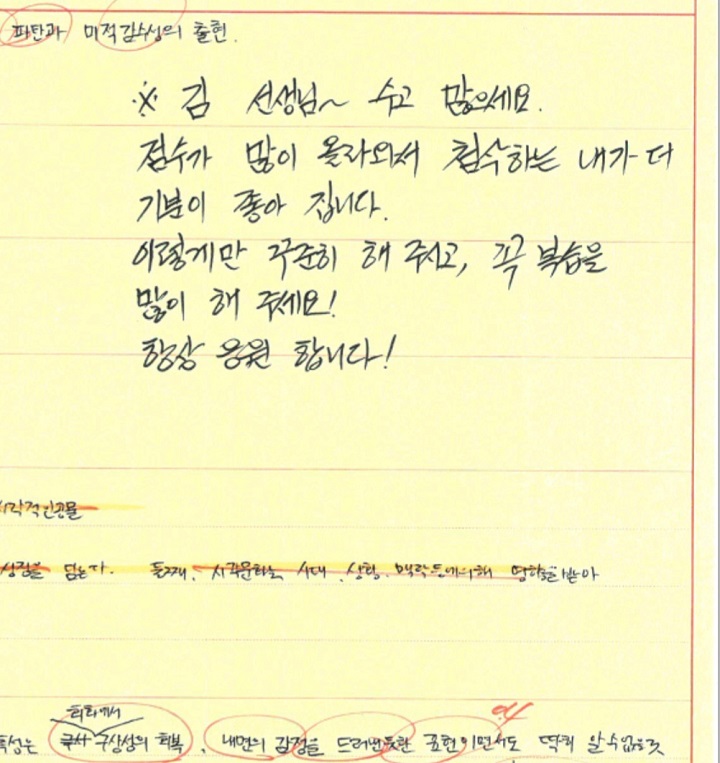 파탄과 미적감수성의 출현.
※ 김 선생님~ 수고 많으세요.
점수가 많이 올라와서 첨삭하는 내가 더
기분이 좋아 집니다.
이렇게만 꾸준히 해 주시고, 꼭 복습을
많이 해 주세요!
항상 응원 합니다!
시각적인공물
성질을 담는다. 둘째, 시각문화는 시대, 상황, 맥락 등에의해 영향을받아
회화에서
특성은 구상성의 회복, 내면의 감정을 드러낸듯한 표현이면서도 딱히 알수없을것